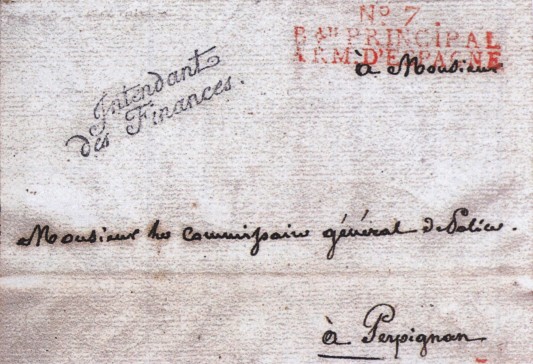 No 7
Bau PRINCIPAL
ARM. D'ESPAGNE
à Monsieur
Intendant
des Finances.
Monsieur le commissaire général de Police.
à Perpignan